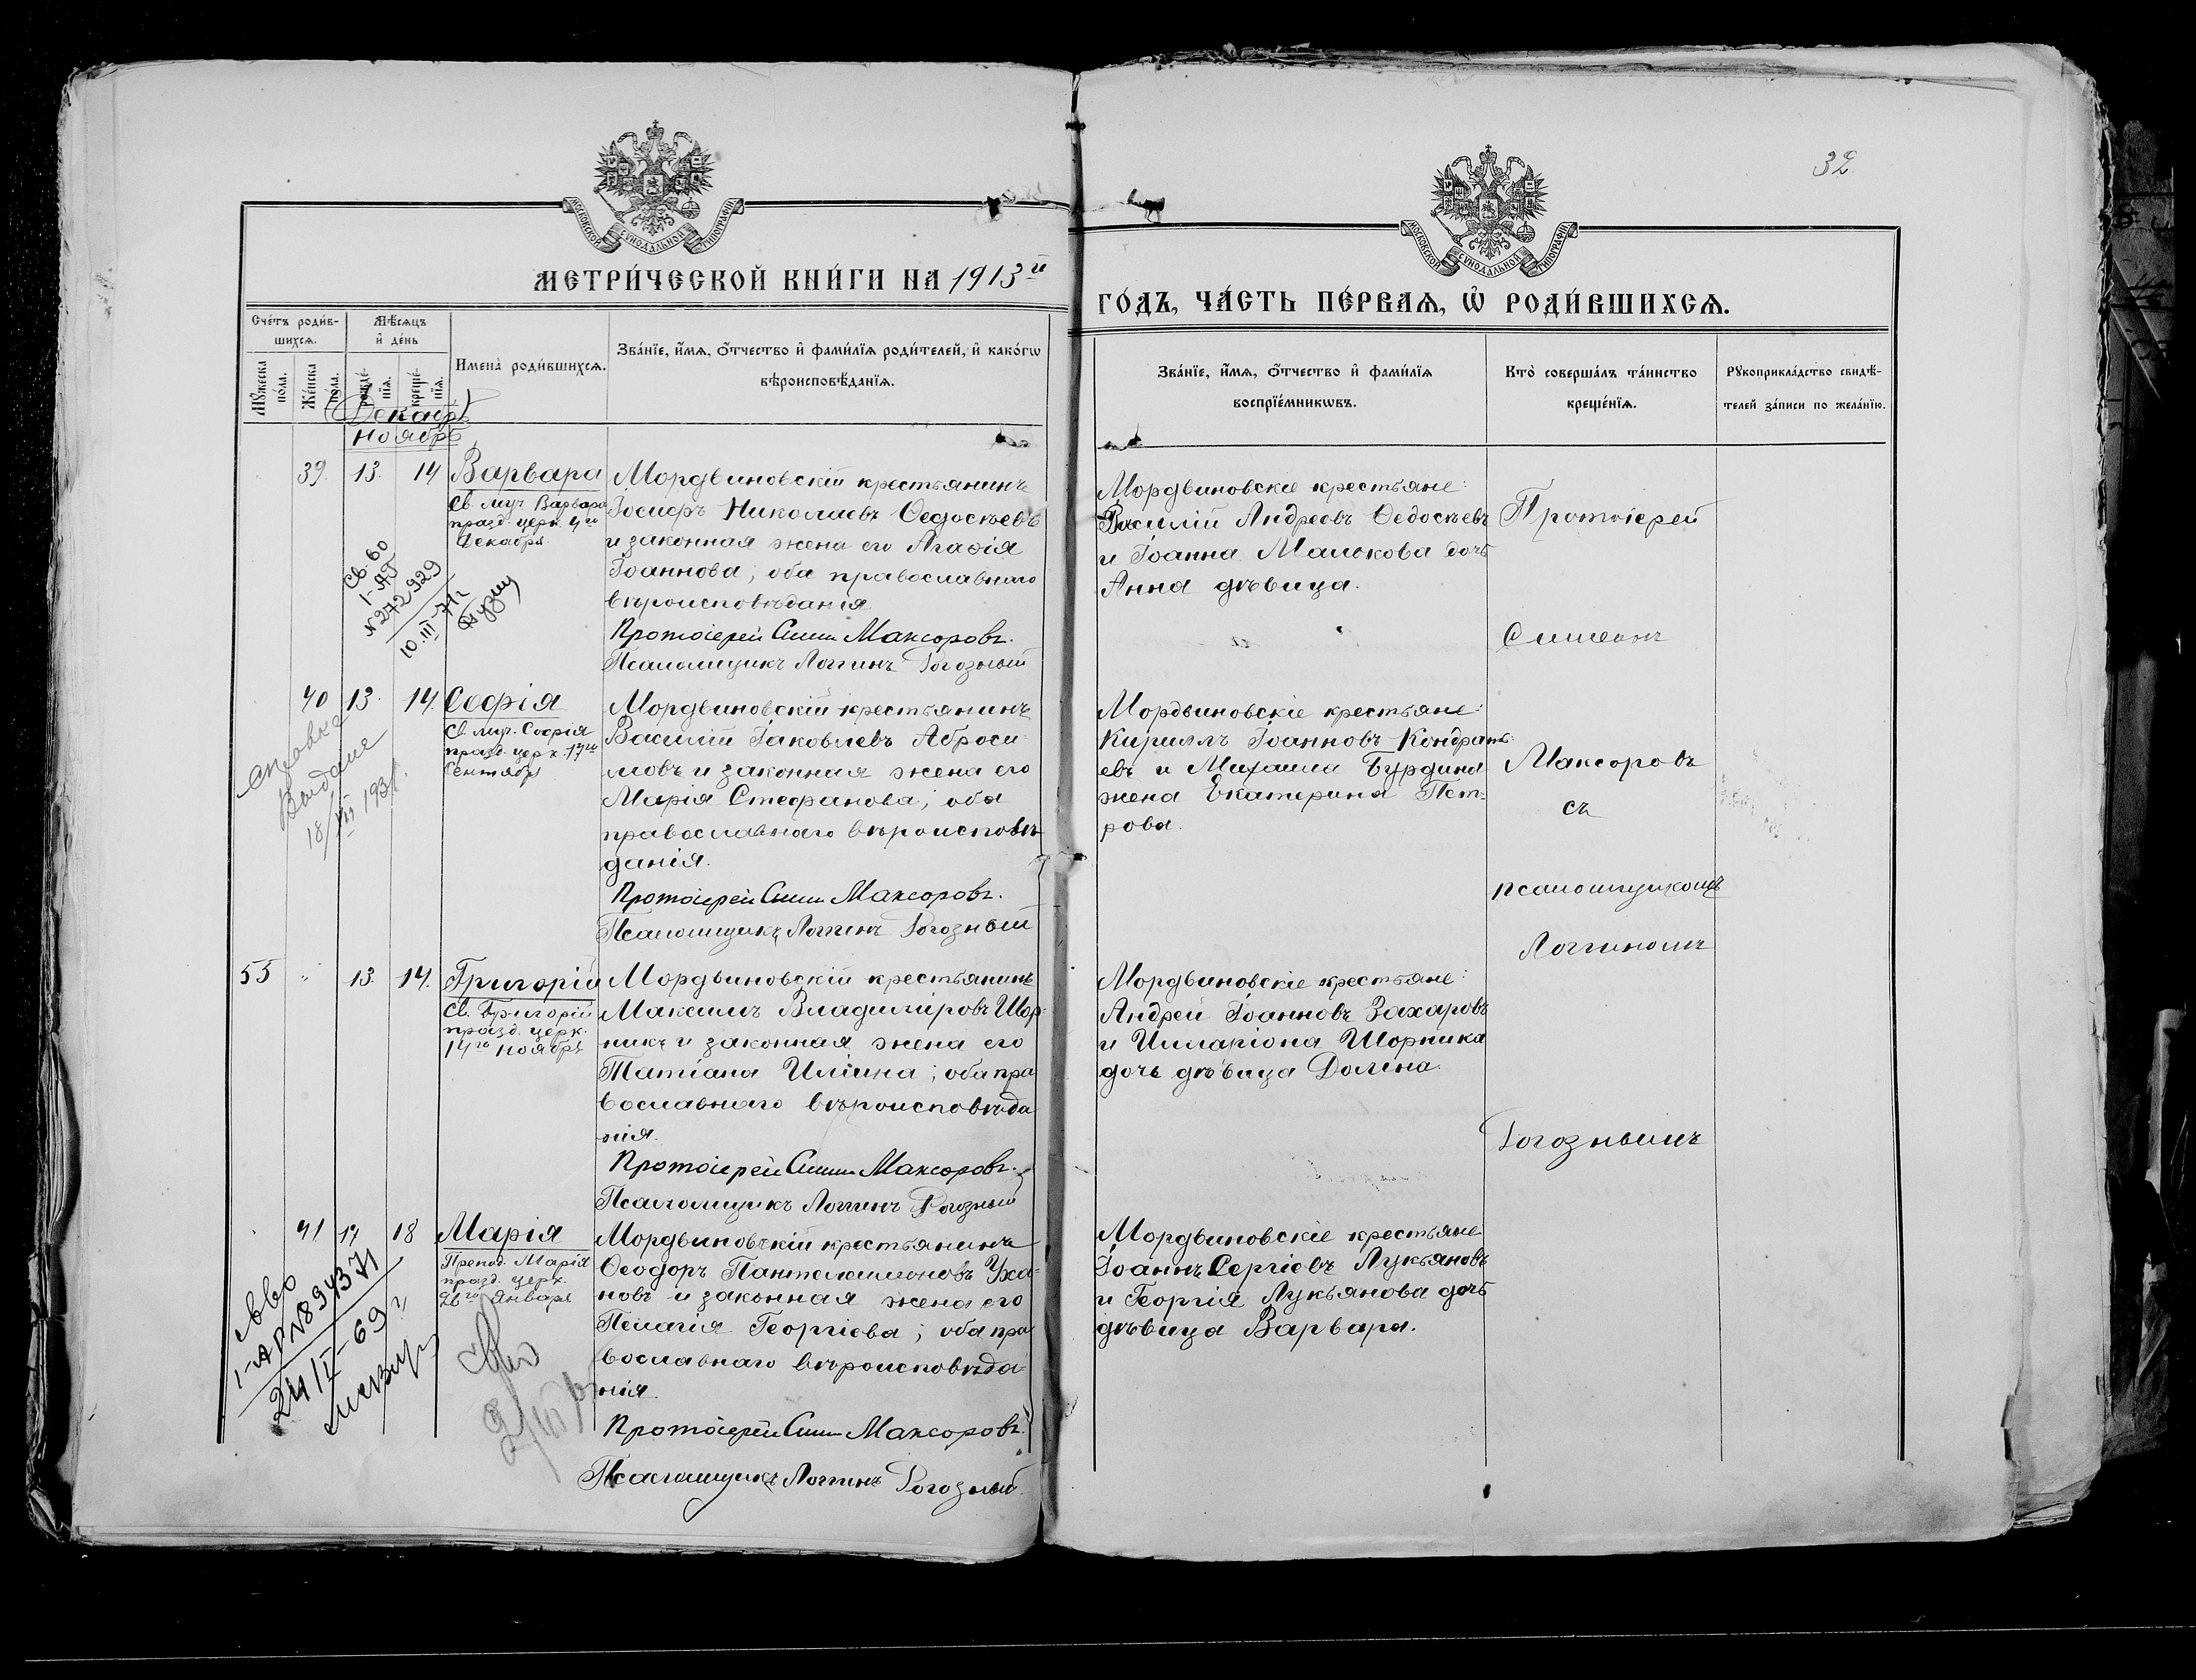 32
МОСКОВСКОЙ СѴНОДАЛЬНОЙ ТИПОГРАФІИ
МОСКОВСКОЙ СѴНОДАЛЬНОЙ ТИПОГРАФІИ
МЕТРИ́ЧЕСКОЙ КНИ́ГИ НА 1913й
ГО́ДЪ, ЧА́СТЬ ПЕ́РВАѦ, Ѽ РОДИ́ВШИХСѦ.
Сче́тъ роди́в-
шихсѧ.
Мѣ́сѧцъ
и҆ де́нь
Мꙋ́жеска
по́ла.
Же́нска
по́ла.
рожде́-
нїѧ.
креще́-
нїѧ.
Имена̀ роди́вшихсѧ.
Зва́нїе, и҆́мѧ, ѻ҆́тчество и҆ фами́лїѧ роди́телей, и҆ како́гѡ
вѣроисповѣ́данїѧ.
Зва́нїе, и҆́мѧ, ѻ҆́тчество и҆ фами́лїѧ
воспрїе́мникѡвъ.
Кто̀ соверша́лъ та́инство
креще́нїѧ.
Рꙋкоприкла́дство свидѣ́-
телей за́писи по жела́нїю.
(Декабрь)
Ноябрь
39. 13. 14 Варвара
Св. муч Варвара
празд. церк. 4го
Декабря.
Св-во
I-АГ
N272929
10.III-71г
Мордвиновскій крестьянинъ
Іосифъ Николаевъ Ѳедосѣевъ
и законная жена его Агаѳія
Іоаннова; оба православнаго
вѣроисповѣданія.
Протоіерей Симеонъ Максоровъ.
Псаломщикъ Логгинъ Рогозный
Мордвиновскіе крестьяне:
Василій Андреевъ Ѳедосѣевъ
и Іоанна Малькова дочь
Анна дѣвица.
Протоіерей
Симеонъ
40 13. 14. Софія
Св. муч. Софія
празд. церк. 17го
Сентября
Справка
Выдана
18/VII 193
Мордвиновскій крестьянинъ
Василій Іаковлевъ Аброси
мовъ и законная жена его
Марія Стефанова; оба
православнаго вѣроисповѣ
данія.
Протоіерей Симеонъ Максоровъ.
Псаломщикъ Логгинъ Рогозный
Мордвиновскіе крестьяне:
Кириллъ Іоанновъ Кондрать-
евъ и Михаила Бурдина
жена Екатерина Пет-
рова.
Максоровъ
съ
псаломщикомъ
Логгиномъ
55 " 13. 14. Григорій
Св. Григорій
празд. церк.
14го Ноября
Мордвиновскій крестьянинъ
Максимъ Владиміровъ Шор-
никъ и законная жена его
Татіана Иліина; оба пра
вославнаго вѣроисповѣда
нія.
Протоіерей Симеонъ Максоровъ.
Псаломщикъ Логгинъ Рогозный
Мордвиновскіе крестьяне:
Андрей Іоанновъ Захаровъ
и Илларіона Шорника
дочь дѣвица Домна.
Рогознымъ
41 17 18 Марія
Препод. Марія
празд. церк.
26го Января
св-во
I-АР N8943 71
24/II-69г
Мордвиновскій крестьянинъ
Ѳеодоръ Пантелеимоновъ Уха-
новъ и законная жена его
Пелагія Георгіева; оба пра
вославнаго вѣроисповѣда-
нія.
Протоіерей Симеонъ Максоровъ.
Псаломщикъ Логгинъ Рогозный.
Мордвиновскіе крестьяне
Іоаннъ Сергіевъ Лукьяновъ
и Георгія Лукьянова дочь
дѣвица Варвара.